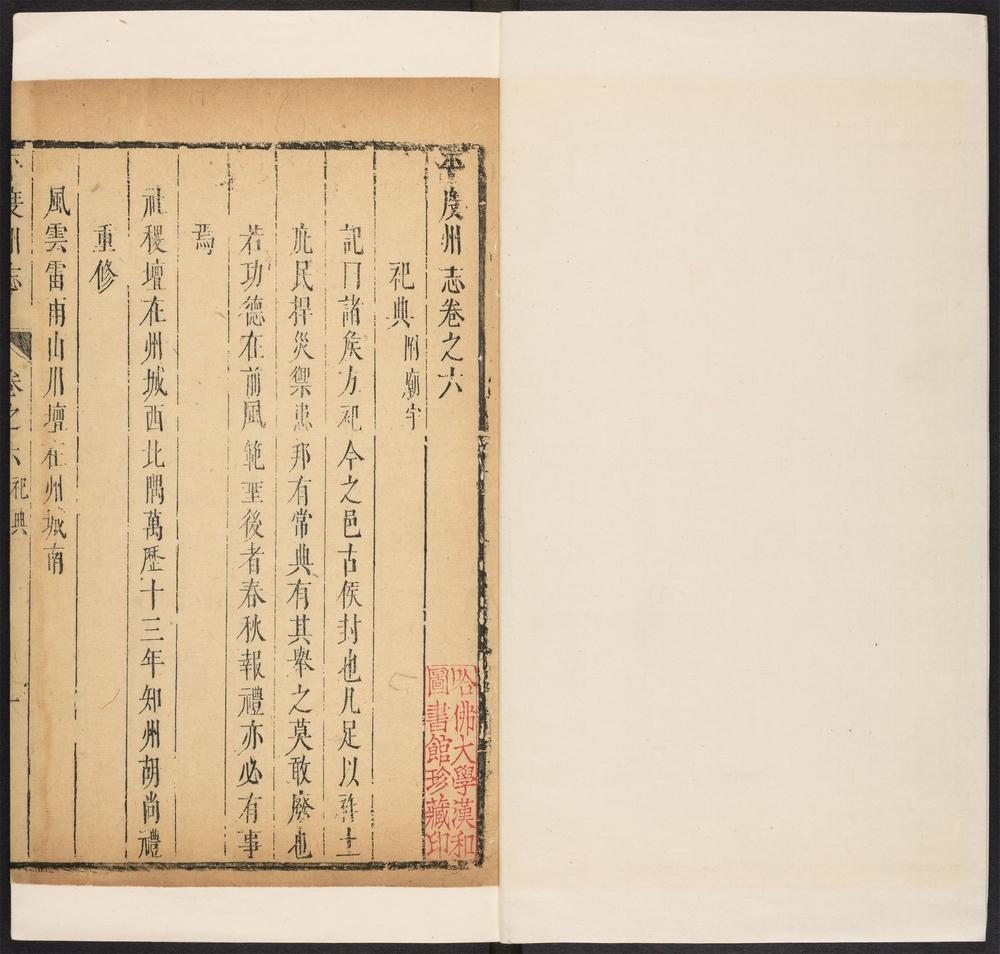 平度州志卷之六
祀典附廟宇
記曰諸侯方祀今之邑古侯封也凡足以
庇民捍災禦患邦有常典有其舉之莫敢廢也
若功德在前風範垩後者春秋報禮亦必有事
焉
社稷壇在州城西北隅萬歷十三年知州胡尚禮
重修
風雲雷雨山川壇在州城南
平度州志 卷之六 祀典 一
哈佛大學漢和
圖書館珍藏印